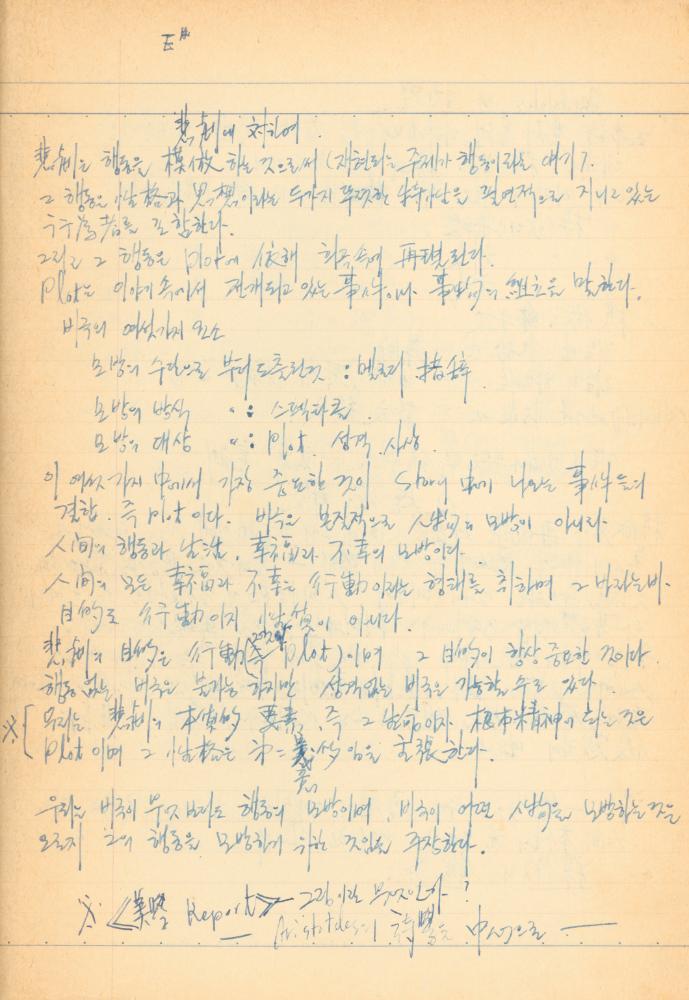 悲劇에 対하여
悲劇은 행동을 模倣하는 것으로써 (재현되는 주제가 행동이라는 얘기).
그 행동은 性格과 思想이라는 두가지 뚜렷한 特性을 필연적으로 지니고 있는
行為者를 포함한다.
그리고 그 행동은 plot에 依해 희곡속에 再現된다.
Plot은 이야기 속에서 전개되고 있는 事件이나 事物의 組立을 말한다.
비극의 여섯가지 요소
모방의 수단으로 부터 도출된것 : 멜로디 措辞
모방의 방식 〃 : 스펙타클.
모방의 대상 〃 : Plot. 성격. 사상.
이 여섯가지 中에서 가장 중요한 것이 Story 中에 나오는 事件들의
결합. 즉 Plot 이다. 비극은 본질적으로 人物의 모방이 아니라
人間의 행동과 生活, 幸福과 不幸의 모방이다.
人間의 모든 幸福과 不幸은 行動이라는 형태를 취하며 그 바라는바
目的도 行動이지 性質이 아니다.
悲劇의 目的은 行動(즉 Plot)이며 그 目的이 항상 중요한 것이다.
행동 없는 비극은 불가능 하지만 성격없는 비극은 가능할 수도 있다.
※ 우리는 悲劇의 本質的 要素, 즉 그 生命이자 根本精神이 되는 것은
Plot 이며 그 性格은 第二義的임을 主張한다.
우리는 비극이 무엇보다도 행동의 모방이며, 비극이 어떤 人物을 모방하는 것은
오로지 그의 행동을 모방하기 위한 것임을 주장한다.
※ 《美學 Report》 그림이란 무엇인가?
— Aristoteles의 詩學을 中心으로 —